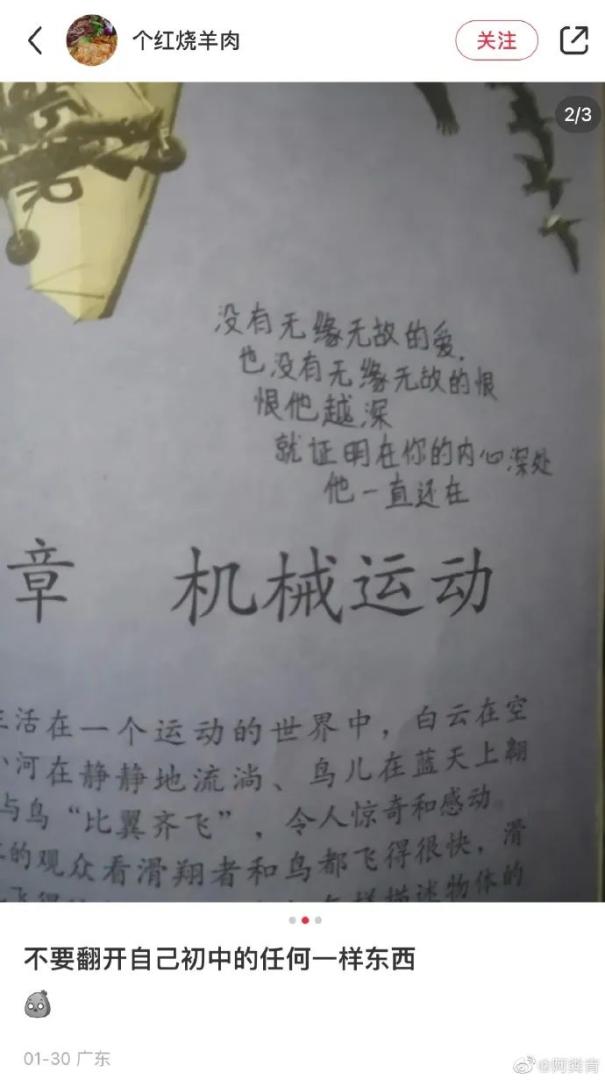 个红烧羊肉
关注
2/3
没有无缘无故的爱,
也没有无缘无故的恨
恨他越深
就证明在你的内心深处
他一直还在
章 机械运动
活在一个运动的世界中，白云在空
河在静静地流淌、鸟儿在蓝天上翱
与鸟“比翼齐飞”，令人惊奇和感动。
的观众看滑翔者和鸟都飞得很快，滑
描述物体的
不要翻开自己初中的任何一样东西
01-30 广东
@阿粪青